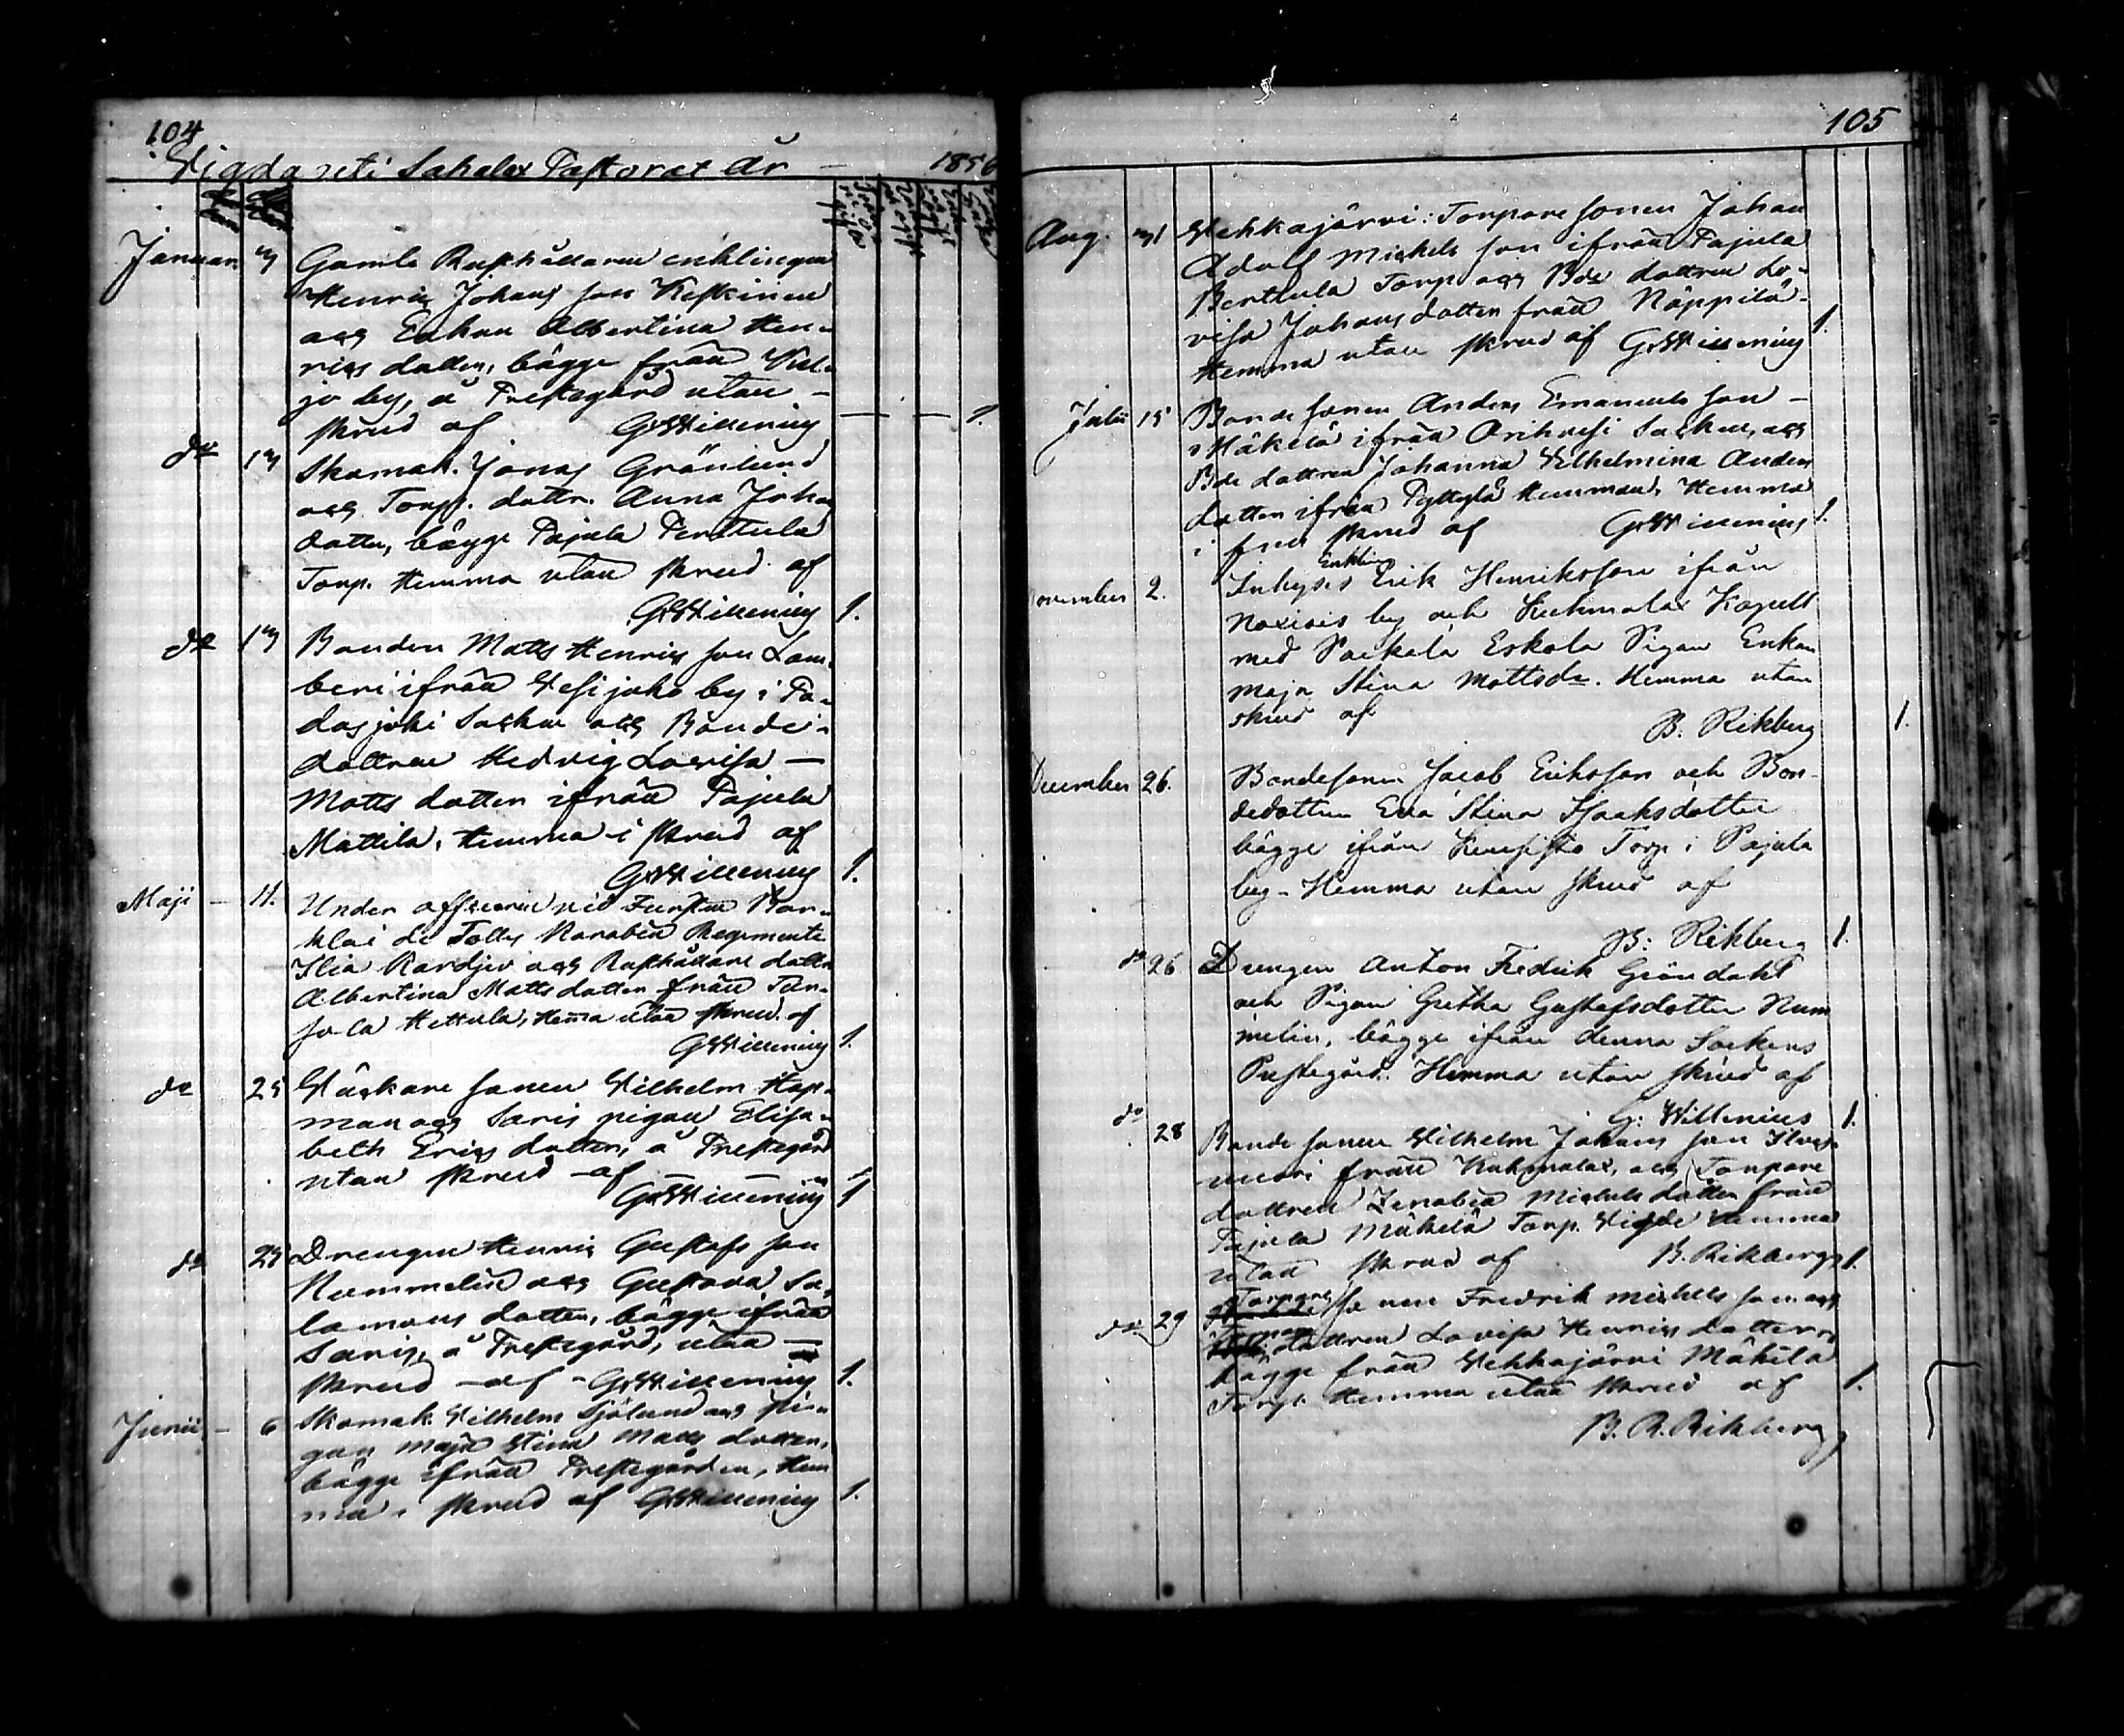 104
Vigda uti Sahalax Pastorat År — 1856
Januar. 3 Gamla Rusthållaren enklingen
Henric Johans son Keskinen
och Enkan Albertina Hen-
rics dotter, bägge från Kul-
ju by, å Prestegård utan —
skrud af G. Willenius — — 1.
do 13 Skomak. Jonas Grönlund
och Torp. dottr. Anna Johans
dotter, bägge Pajula Perttula
Torp. Hemma utan skrud af
G. Willenius 1.
do 13 Bonden Matts Henrics son Lam-
beri ifrån Vesijako by i Pa-
dasjoki Sochn och Bonde-
dottren Hedvig Lovisa —
Matts dotter ifrån Pajula
Mattila, Hemma i skrud af
G. Willenius 1.
Maji — 11. Under officeren vid Fursten Bar-
klai de Tolly Karabin Regemente
Ilia Kardjev och Rusthållare dottr
Albertina Matts dotter från
Hettula, Hemma utan skrud af
G. Willenius 1.
do 25 Väskare sonen Vilhelm Hap-
man och Saris pigan Elisa-
beth Erics dotter, å Prestegård
utan skrud — af —
G. Willenius 1
do 25 Drengen Henric Gustafs son
Nummelin och Gustava Sa-
lomons dotter, bägge ifrån
Saris, å Prestegård, utan —
skrud — af — G. Willenius 1.
Junii — 6 Skomak. Vilhelm Sjölund och Pi-
gan Maja Stina Matts dotter,
bägge ifrån Prestegården, Hem
ma i skrud af G. Willenius 1.
105
Aug. 31 Vehkajärvi: Torpare sonen Johan
Adolf Michels son ifrån Pajula
Berttula Torp och Bde dottren Lo-
visa Johans dotter från Näppilä-
Hemma utan skrud af G. Willenius 1.
Julii 15 Bonde sonen Anders Emanuels son —
Mäkelä ifrån Orihvesi Sochen, och
Bde dottren Johanna Vilhelmina Anders
dotter ifrån Pyttylä Hemman, Hemma
i skrud af G. Willenius 1.
Enkling
November 2. Inhyses Erik Henriksson ifrån
by och Kuhmalax Kapell
med Sackala Eskola Pigan Enkan
Maja Stina Mattsdr. Hemma utan
skrud af B. Rikberg 1.
December 26. Bondesonen Jacob Eriksson och Bon-
dedottren Eva Stina Isaaksdotter
bägge ifrån Torp i Pajula
by - Hemma utan skrud af
B. Rikberg 1.
do 26 Drengen Anton Fredrik Gröndahl
och Pigan Gretha Gustafsdotter Num
melin, bägge ifrån denna Sockens
Prestegård. Hemma utan skrud af
G. Willenius 1.
do 28 Bonde sonen Vilhelm Johans son
från Kuhmalax, och Torpare
dottren Zenobia Michels dotter från
Pajula Mäkelä Torp. Vigde Hemma
utan skrud af B. Rikberg 1.
Torpare
do 29 sonen Fredrik Michels son och
dottren Lovisa Henrics dotter,
bägge från Vehkajärvi Mäkelä
Torp. Hemma utan skrud af 1.
B. R. Rikberg